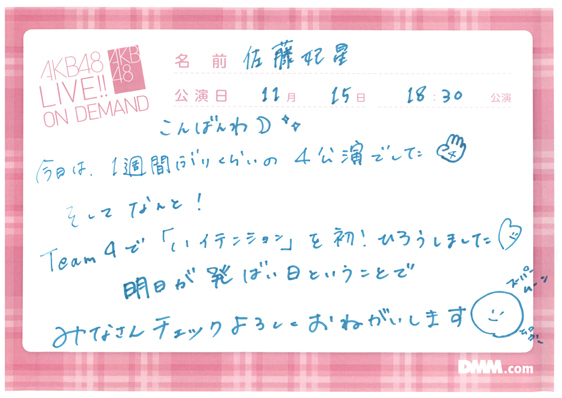 AKB48
LIVE!!
ON DEMAND
AKB
48
名前 佐藤妃星
公演日 11月 15日 18:30 公演
こんばんわ
今日は、1週間ぶりくらいの4公演でした
そしてなんと!
Team4で「ハイテンション」を初!ひろうしました
明日が発ばい日ということで
みなさんチェックよろしくおねがいします
スーパー
ムーン
DMM.com